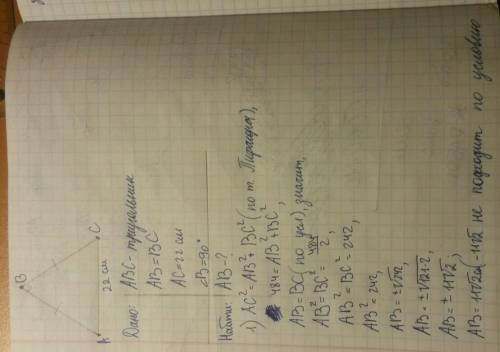 B
A
22 см
C
Дано: ABC - треугольник
AB=BC
AC=22 см
∠B=90°
Найти: AB-?
1) AC²=AB²+BC² (по т. Пифагора),
484=AB²+BC²
AB=BC (по усл), значит,
AB²=BC²=484/2,
AB²=BC²=242,
AB²=242,
AB=±√242,
AB=±√121·2,
AB=±11√2,
AB=11√2см(-11√2 не подходит по условию